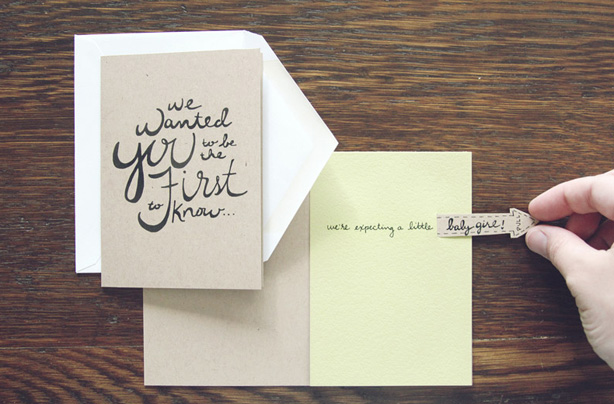 we
wanted
you to be
the
first
to
know...
we're expecting a little baby girl!
PULL